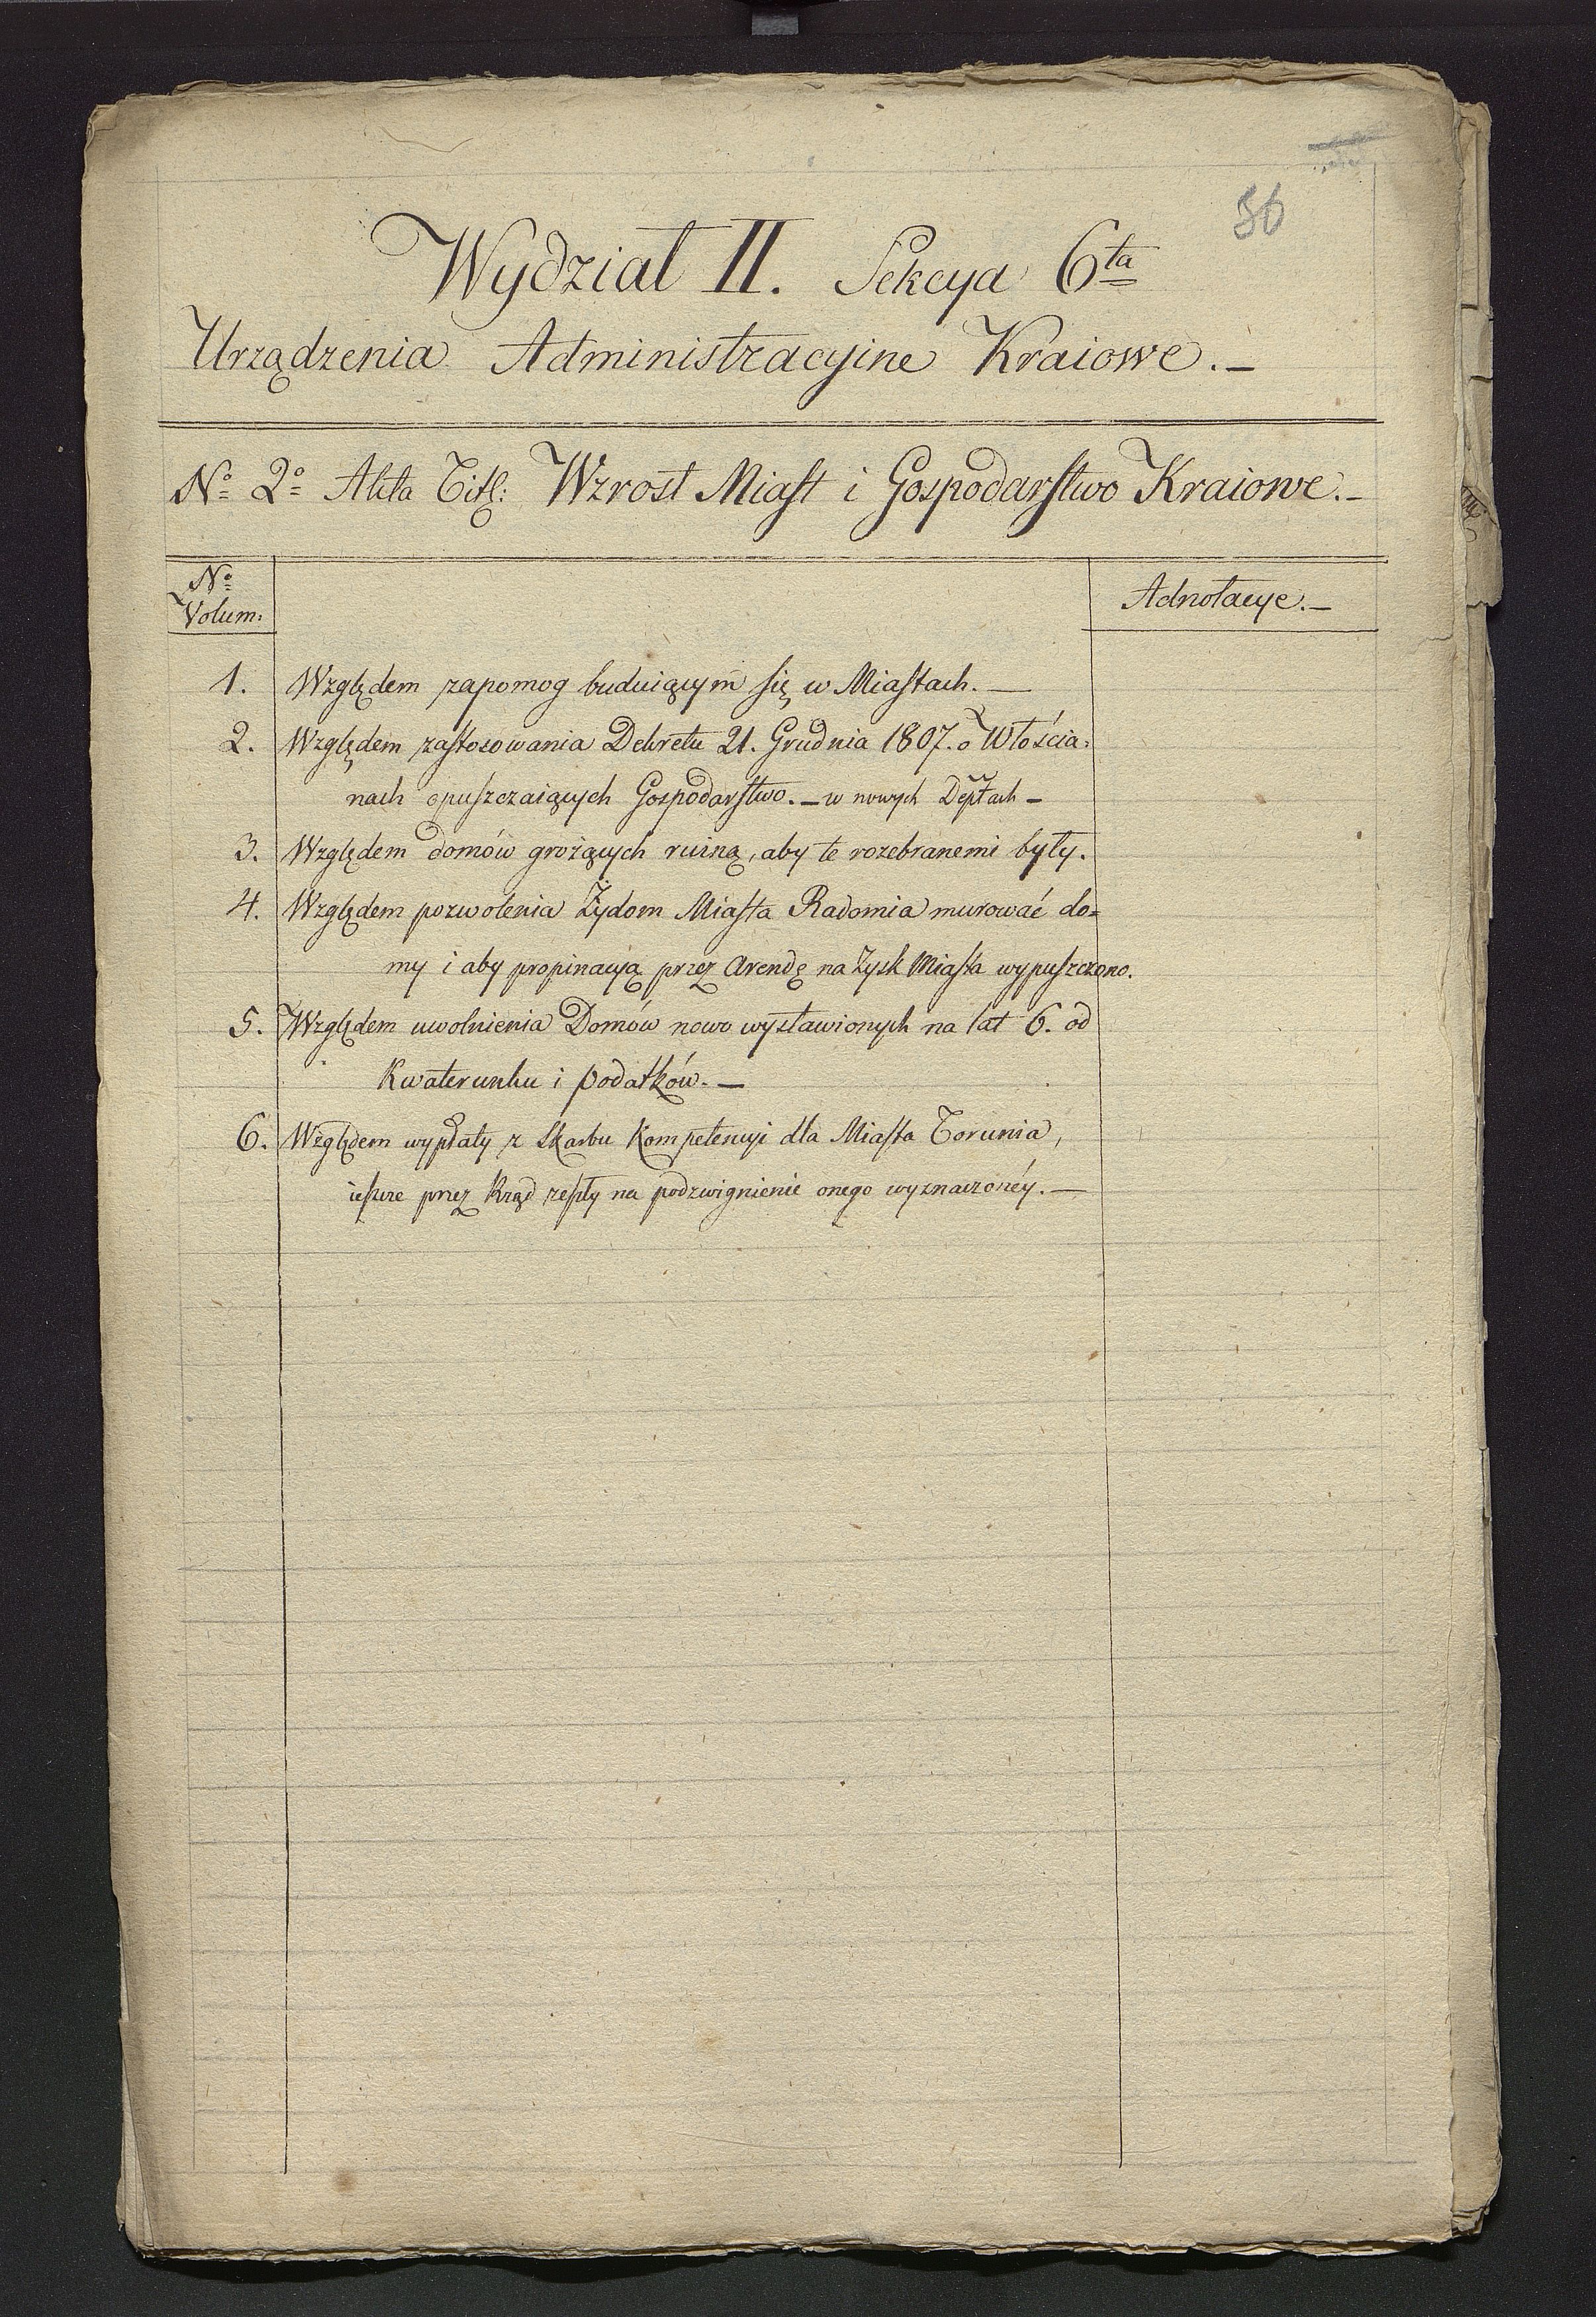 36
Wydział II. Sekcya 6ta
Urządzenia Administracyine Kraiowe.—
No 2o Akta Titl: Wzrost Miast i Gospodarstwo Kraiowe.—
No
Volum:
Adnotacye.—
1. Względem zapomog buduiącym się w Miastach.—
2. Względem zastosowania Dekretu 21. Grudnia 1807. o Włościa:
nach opuszczaiących Gospodarstwo.— w nowych Deptach —
3. Względem domów grożących ruiną, aby te rozebranemi były.
4. Względem pozwolenia Żydom Miasta Radomia murować do=
my i aby propinacyą przez Arendę na Zysk Miasta wypuszczono.
5. Względem uwolnienia Domów nowo wystawionych na lat 6. od
Kwaterunku i podatków.—
6. Względem wypłaty z Skarbu Kompetencyi dla Miasta Torunia,
ieszcze przez Rząd zeszły na podzwignienie onego wyznaczonéy.—